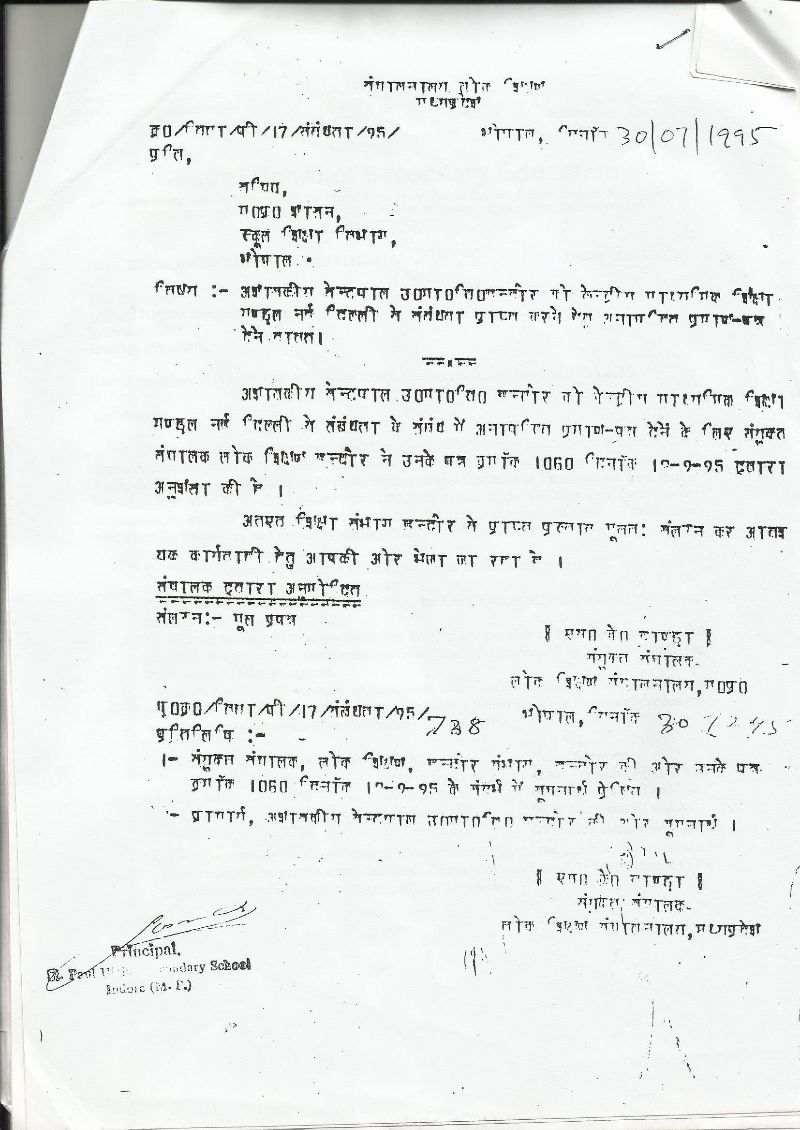 संचालनालय लोक शिक्षण
मध्यप्रदेश
क्र0/विधा/पी/17/संबंधता/95/ भोपाल, दिनाँक 30/07/1995
प्रति,
सचिव,
म0प्र0 शासन,
स्कूल शिक्षा विभाग,
भोपाल
विषय :- अशासकीय सेन्टपाल उ0मा0वि0इन्दौर को केन्द्रीय माध्यमिक शिक्षा
मण्डल नई दिल्ली से संबंधता प्राप्त करने हेतु अनापत्ति प्रमाण-पत्र
देने बाबत।
अशासकीय सेन्टपाल उ0मा0वि0 इन्दौर को केन्द्रीय माध्यमिक शिक्षा
मण्डल नई दिल्ली से संबंधता के संबंध में अनापत्ति प्रमाण-पत्र देने के लिए संयुक्त
संचालक लोक शिक्षण इन्दौर ने उनके पत्र क्रमाँक 1060 दिनाँक द्वारा
अनुशंसा की है ।
अतएव शिक्षा संभाग इन्दौर से प्राप्त प्रस्ताव मूलतः संलग्न कर आवश
यक कार्यवाही हेतु आपकी ओर भेजा जा रहा है ।
संचालक द्वारा अनुमोदित
संलग्न:- मूल प्रपत्र
संयुक्त संचालक
लोक शिक्षण संचालनालय,म0प्र0
पृ0क्र0/विधा/पी/17/संबंधता/95/738 भोपाल,दिनाँक
प्रतिलिपि :-
1- संयुक्त संचालक, लोक शिक्षण, इन्दौर संभाग, इन्दौर की ओर उनके पत्र
क्रमाँक 1060 दिनाँक के संदर्भ में सूचनार्थ प्रेषित ।
प्राचार्य, अशासकीय सेन्टपाल उ0मा0वि0 इन्दौर की ओर सूचनार्थ ।
संयुक्त संचालक
लोक शिक्षण संचालनालय,मध्यप्रदेश
Principal,
St. Paul Secondary School
Indore (M. P.)